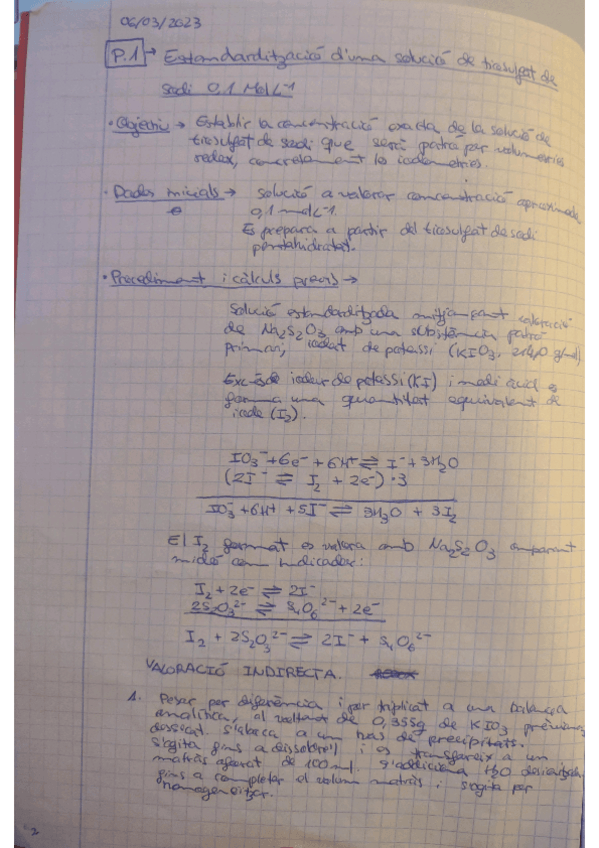 06/03/2023
P.1 → Estandardització d'una solució de tiosulfat de
sodi 0,1 Mol L⁻¹
• Objectiu → Establir la concentració exacta de la solució de
tiosulfat de sodi que serà patró per volumetries
redox, concretament les iodometries.
• Dades inicials → Solució a valorar concentració aproximada
0,1 mol L⁻¹.
Es prepara a partir del tiosulfat de sodi
pentahidratat.
• Procediment i càlculs previs →
Solució estandarditzada mitjançant valoració
de Na₂S₂O₃ amb una substància patró
primari, iodat de potassi (KIO₃, 214,0 g/mol)
Excés de iodur de potassi (KI) i medi àcid es
forma una quantitat equivalent de
iode (I₂).
IO₃⁻ + 6e⁻ + 6H⁺ ⇌ I⁻ + 3H₂O
(2I⁻ ⇌ I₂ + 2e⁻) · 3
IO₃⁻ + 6H⁺ + 5I⁻ ⇌ 3H₂O + 3I₂
El I₂ format es valora amb Na₂S₂O₃ emprant
midó com indicador:
I₂ + 2e⁻ ⇌ 2I⁻
2S₂O₃²⁻ ⇌ S₄O₆²⁻ + 2e⁻
I₂ + 2S₂O₃²⁻ ⇌ 2I⁻ + S₄O₆²⁻
VALORACIÓ INDIRECTA.
1. Pesar per diferència i per triplicat a una balança
analítica, al voltant de 0,355g de KIO₃ prèviament
dessecat. S'aboca a un vas de precipitats.
S'agita fins a dissoldre'l i es transfereix a un
matràs aforat de 100 ml. S'addiciona H₂O desionitzada
fins a completar el volum matràs i s'agita per
homogeneïtzar.
2